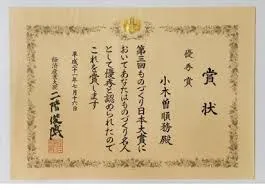 賞状
優秀賞
小木曽順務殿
第三回ものづくり日本大賞に
おいてあなたはものづくり名人
として優秀と認められたので
これを賞します
平成二十一年七月十六日
経済産業大臣 二階俊博